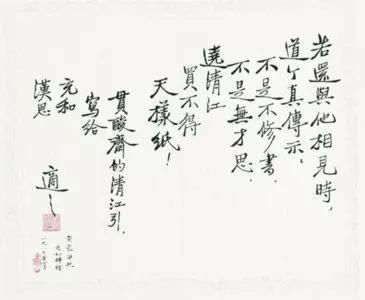 若還與他相見時,
道个真傳示:
不是不修書,
不是無才思,
遶清江
買不得
天樣紙!
貫酸齋的清江引,
寫給
充和
漢思
適之
黃裳
充和轉贈